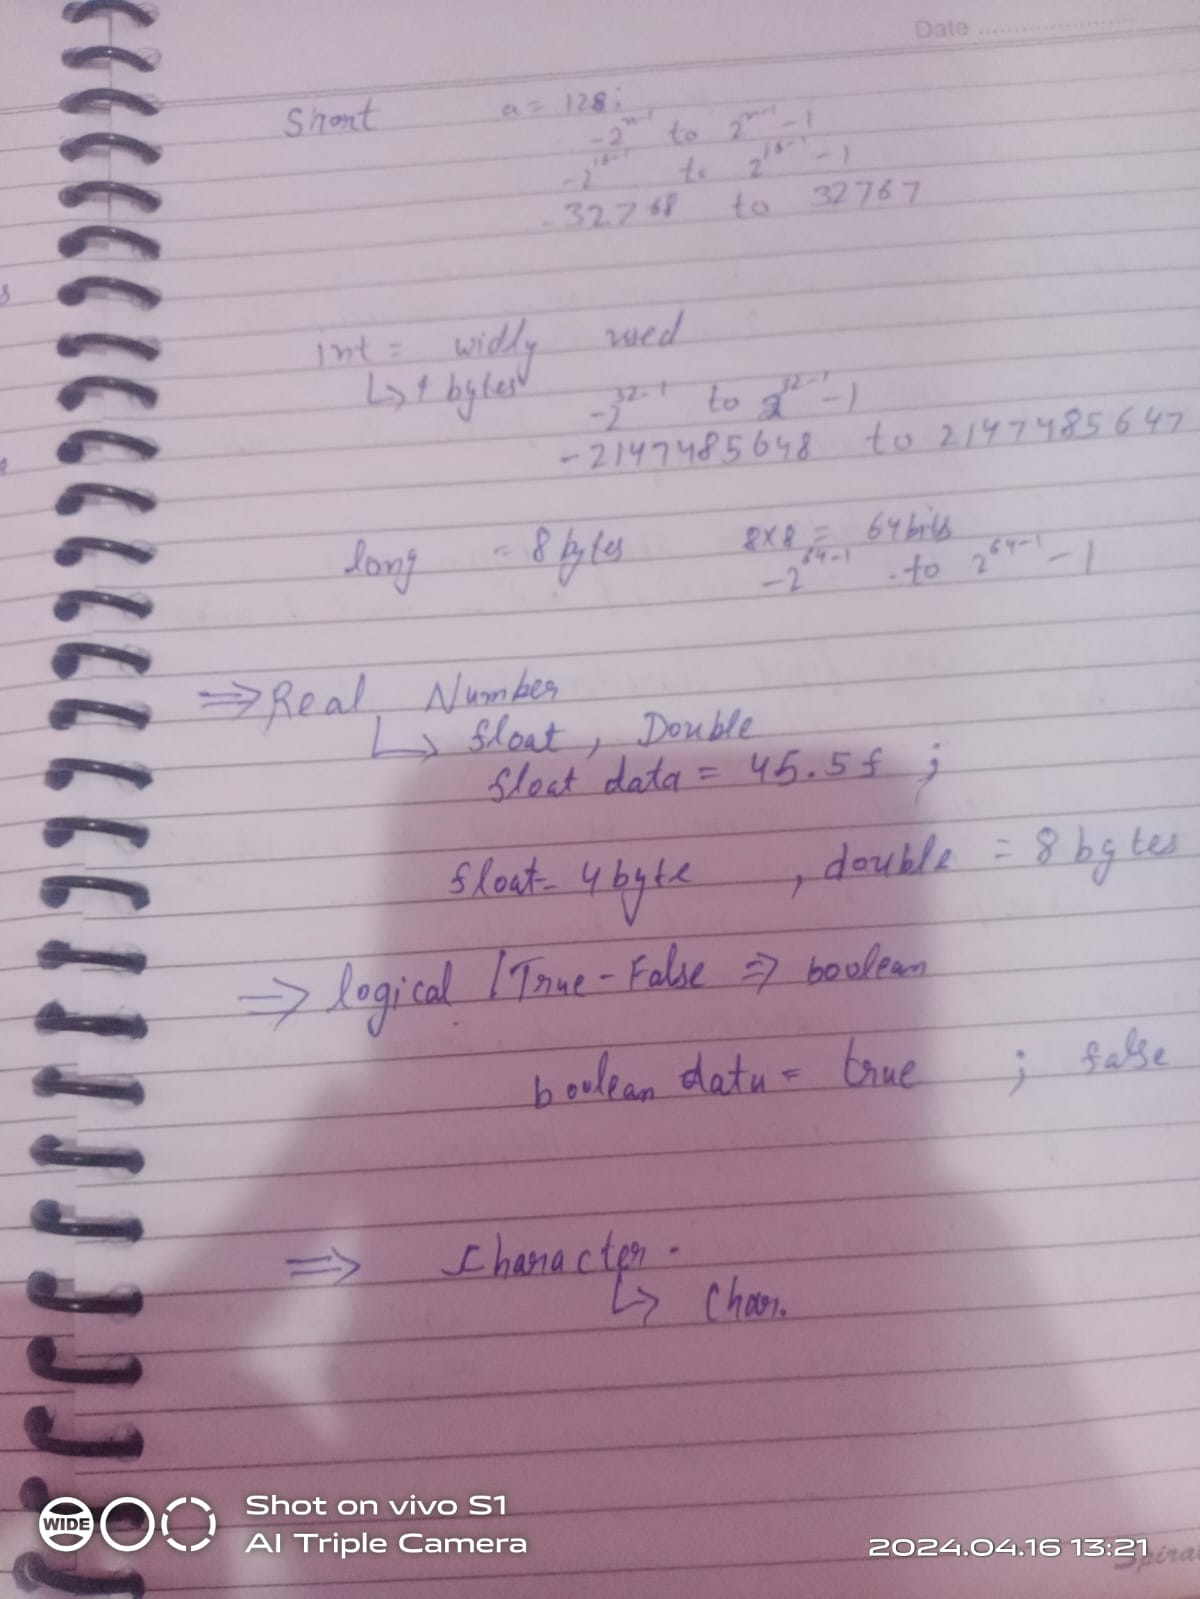 Date
Short a = 128;
-2^n-1 to 2^n-1 -1
-2^16-1 to 2^16-1 -1
-32768 to 32767
int = widly used
↳ 4 bytes
-2^32-1 to 2^32-1 -1
-2147485648 to 2147485647
long = 8 bytes 8x8 = 64 bits
-2^64-1 to 2^64-1 -1
⇒ Real Number
↳ float, Double
float data = 45.5f ;
float - 4 byte , double = 8 bytes
⇒ logical / True - False ⇒ boolean
boolean data = true ; false
⇒ Character.
↳ Char.
WIDE
Shot on vivo S1
AI Triple Camera
2024.04.16 13:21
Spiral